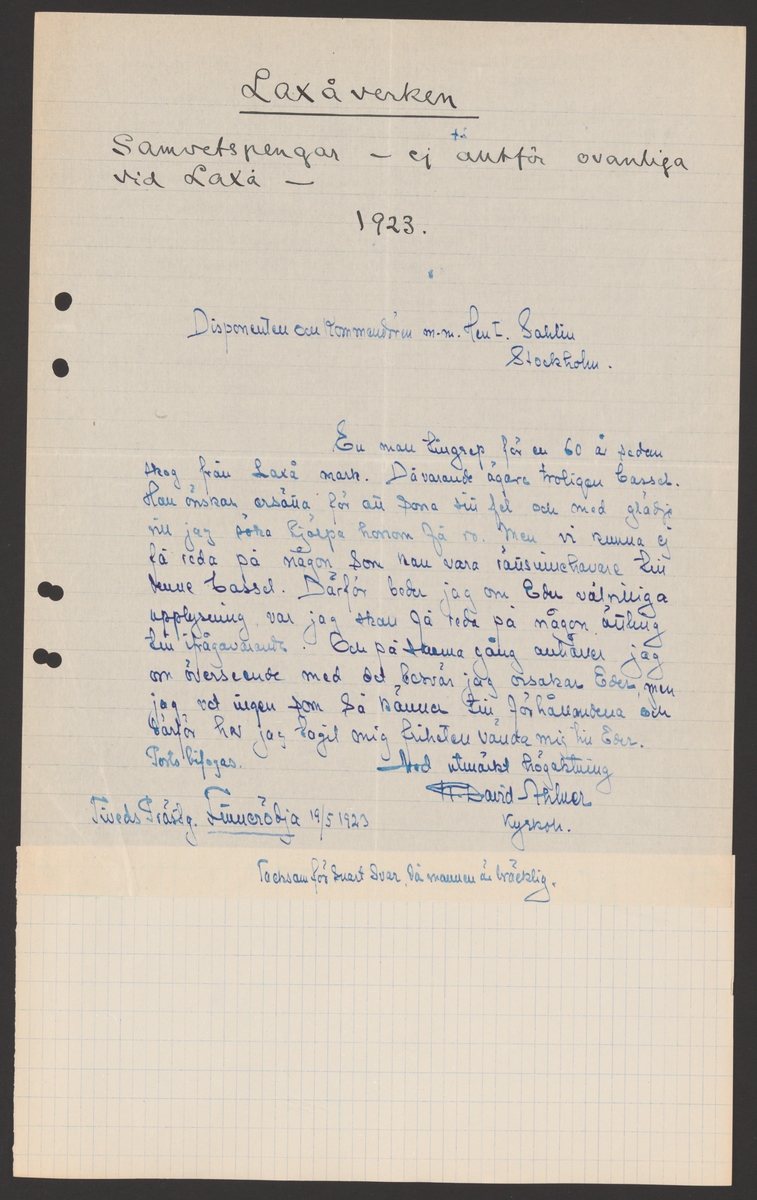 Laxå verken
Samvetspengar – ej alltför ovanliga
vid Laxå –
1923.
Disponenten och Kommendören m.m. Herr C. Sahlin
Stockholm.
En man tillgrep för en 60 år sedan
skog från Laxå mark. Dåvarande ägare troligen Cassel.
Han önskar ersätta för att sona sitt fel och med glädje
vill jag söka hjälpa honom få ro. Men vi kunna ej
få reda på någon som kan vara rättsinnehavare till
denne Cassel. Därför beder jag om Eder välvilliga
upplysning var jag skall få reda på någon ättling
till ifrågavarande. Och på samma gång anhåller jag
om överseende med det besvär jag orsakar Eder, men
jag vet ingen som så känner till förhållandena och
därför har jag tagit mig friheten vända mig till Eder.
Porto bifogas. Med utmärkt högaktning
David Ahlner
Tiveds Prästg. Finnerödja 19/5 1923 Kyrkoh.
Tacksam för snart svar, då mannen är bräcklig.